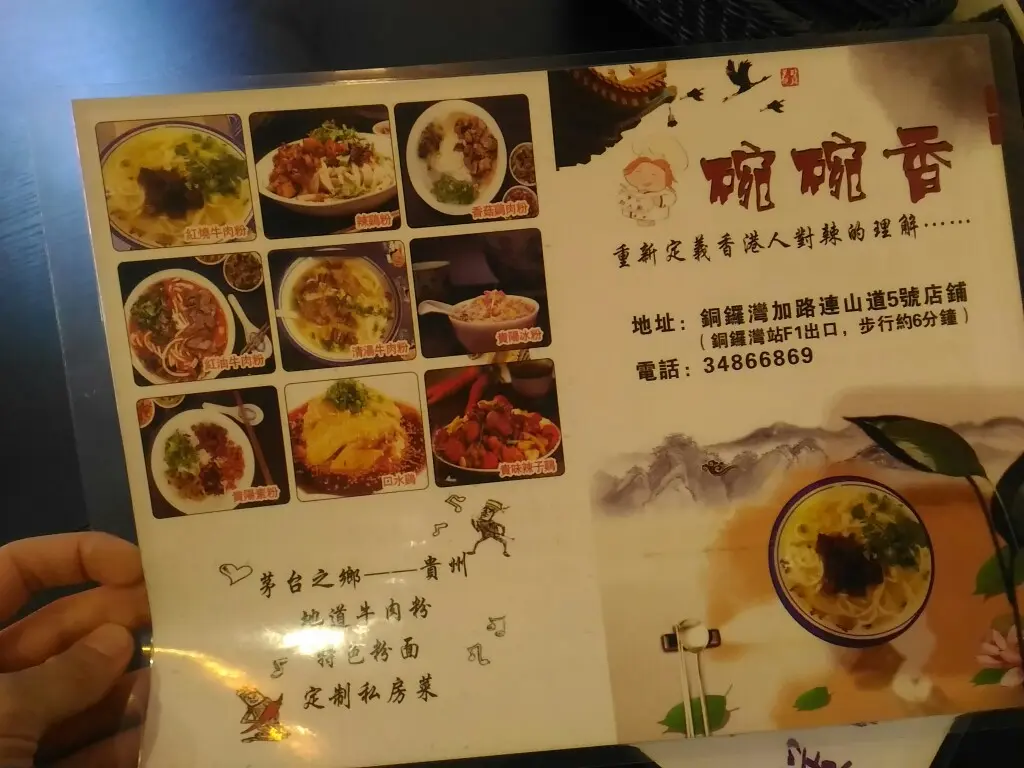 紅燒牛肉粉
辣鷄粉
香菇鷄肉粉
紅油牛肉粉
清湯牛肉粉
貴陽冰粉
貴陽素粉
口水鷄
貴味辣子鷄
茅台之鄉——貴州
地道牛肉粉
特色粉面
定制私房菜
碗碗香
重新定義香港人對辣的理解……
地址：銅鑼灣加路連山道5號店鋪
（銅鑼灣站F1出口，步行約6分鐘）
電話：34866869